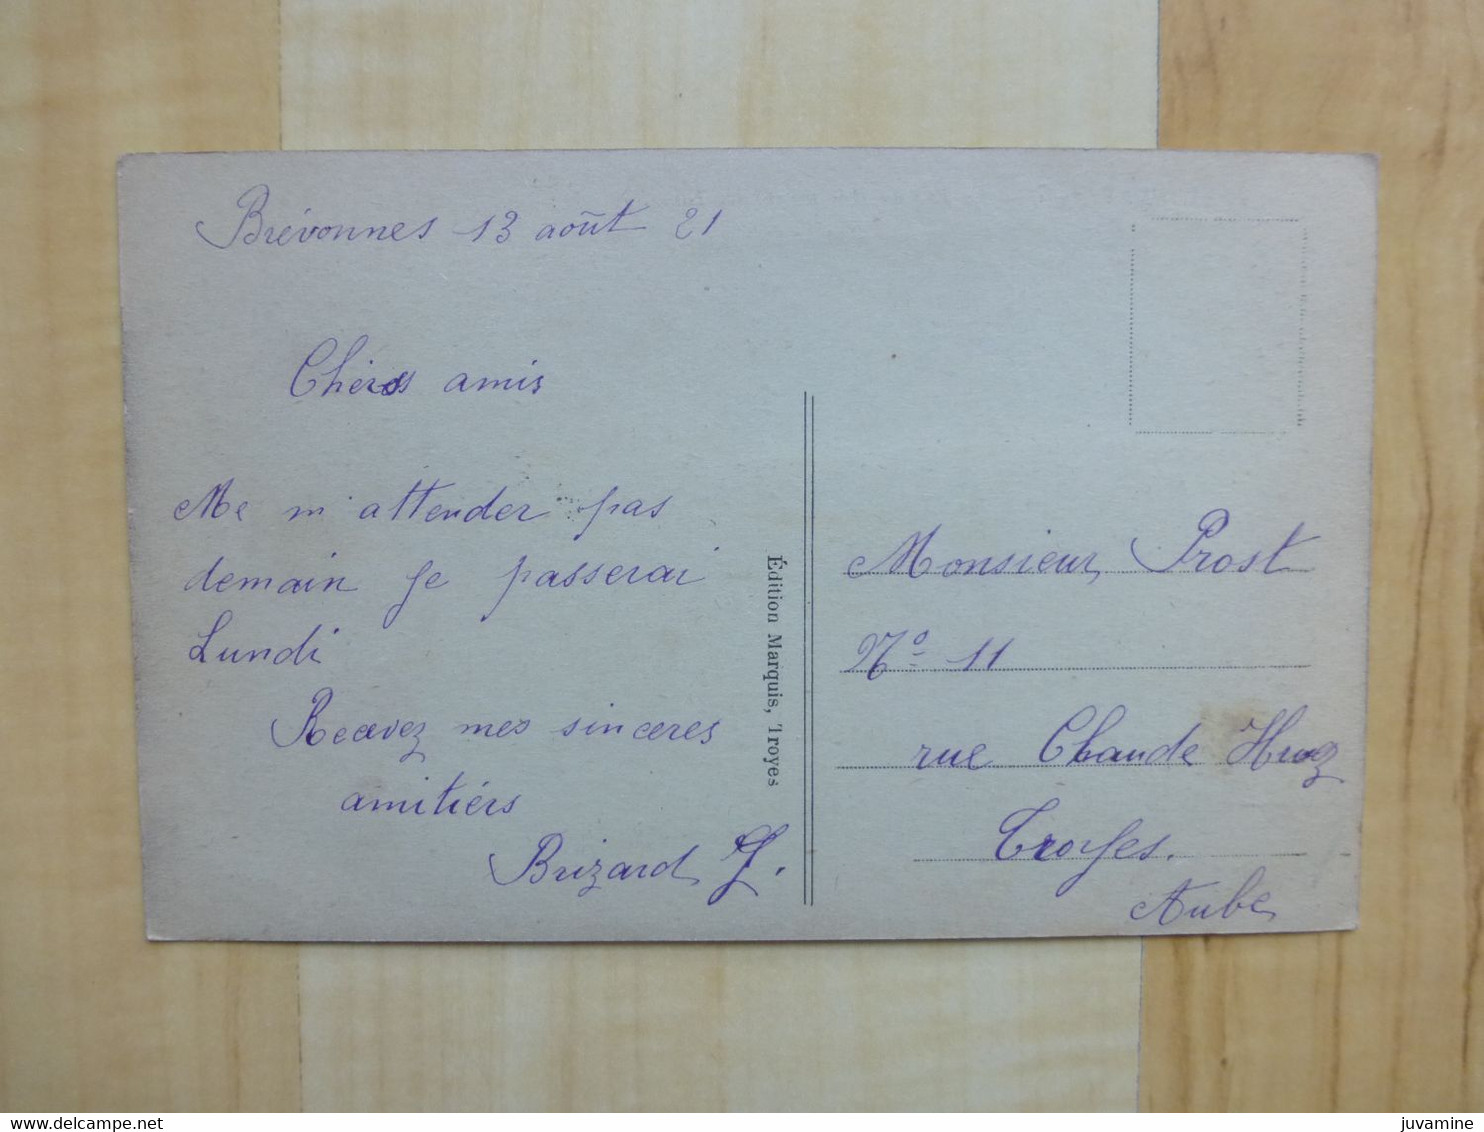 Brévonnes 13 août 21
Chers amis
Ne m'attender pas
demain je passerai
Lundi
Recevez mes sinceres
amitiérs
Brizard J.
Édition Marquis, Troyes
Monsieur Prost
No 11
rue Chaude
Troyes.
Aube
juvamine